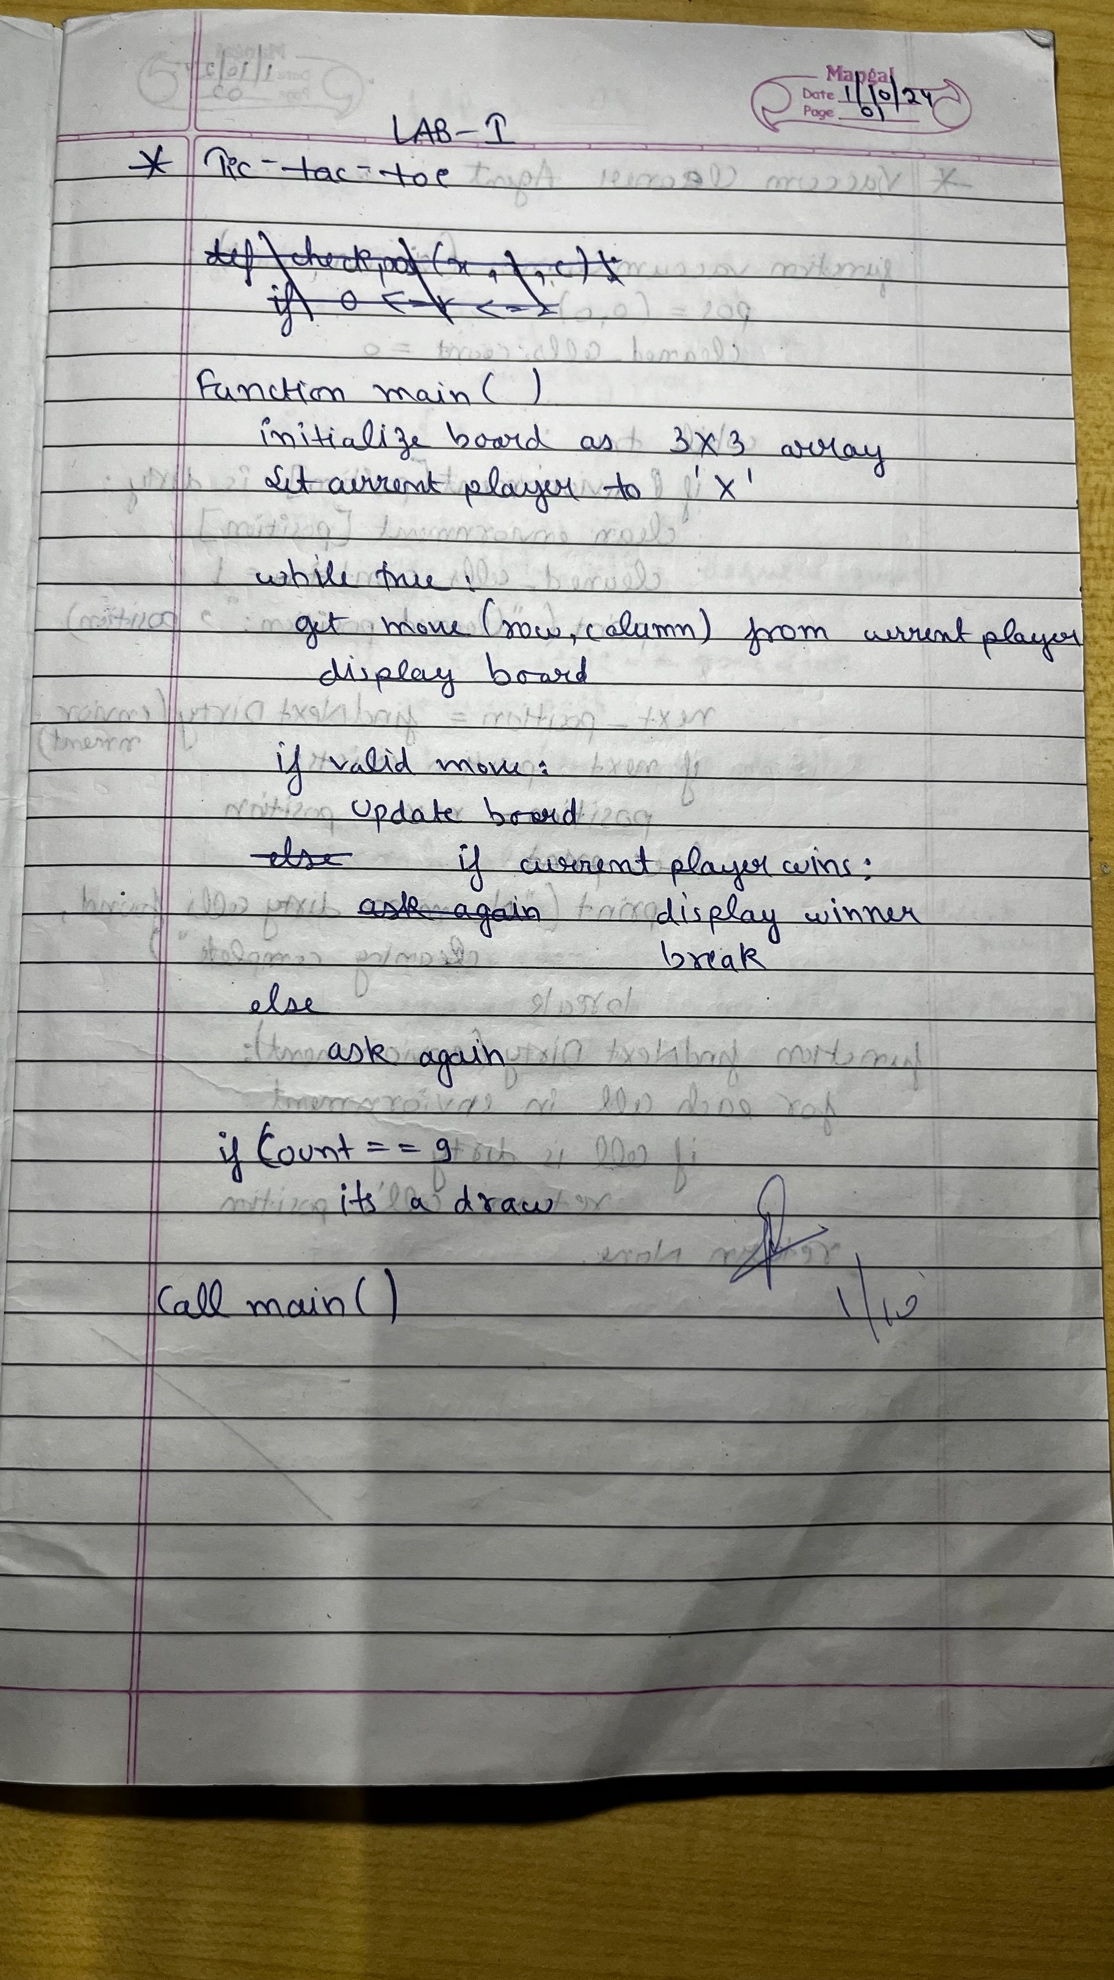 Mangal
Date 1/10/24
Page 01
LAB-I
* Tic-tac-toe
def check pos (x, y, c):
if 0 <= x <= 2
Function main( )
initialize board as 3x3 array
Set current player to 'X'
while true:
get move (row, column) from current player
display board
if valid move:
Update board
else if current player wins:
ask again display winner
break
else
ask again
if Count == 9
its a draw
Call main( )
1/10